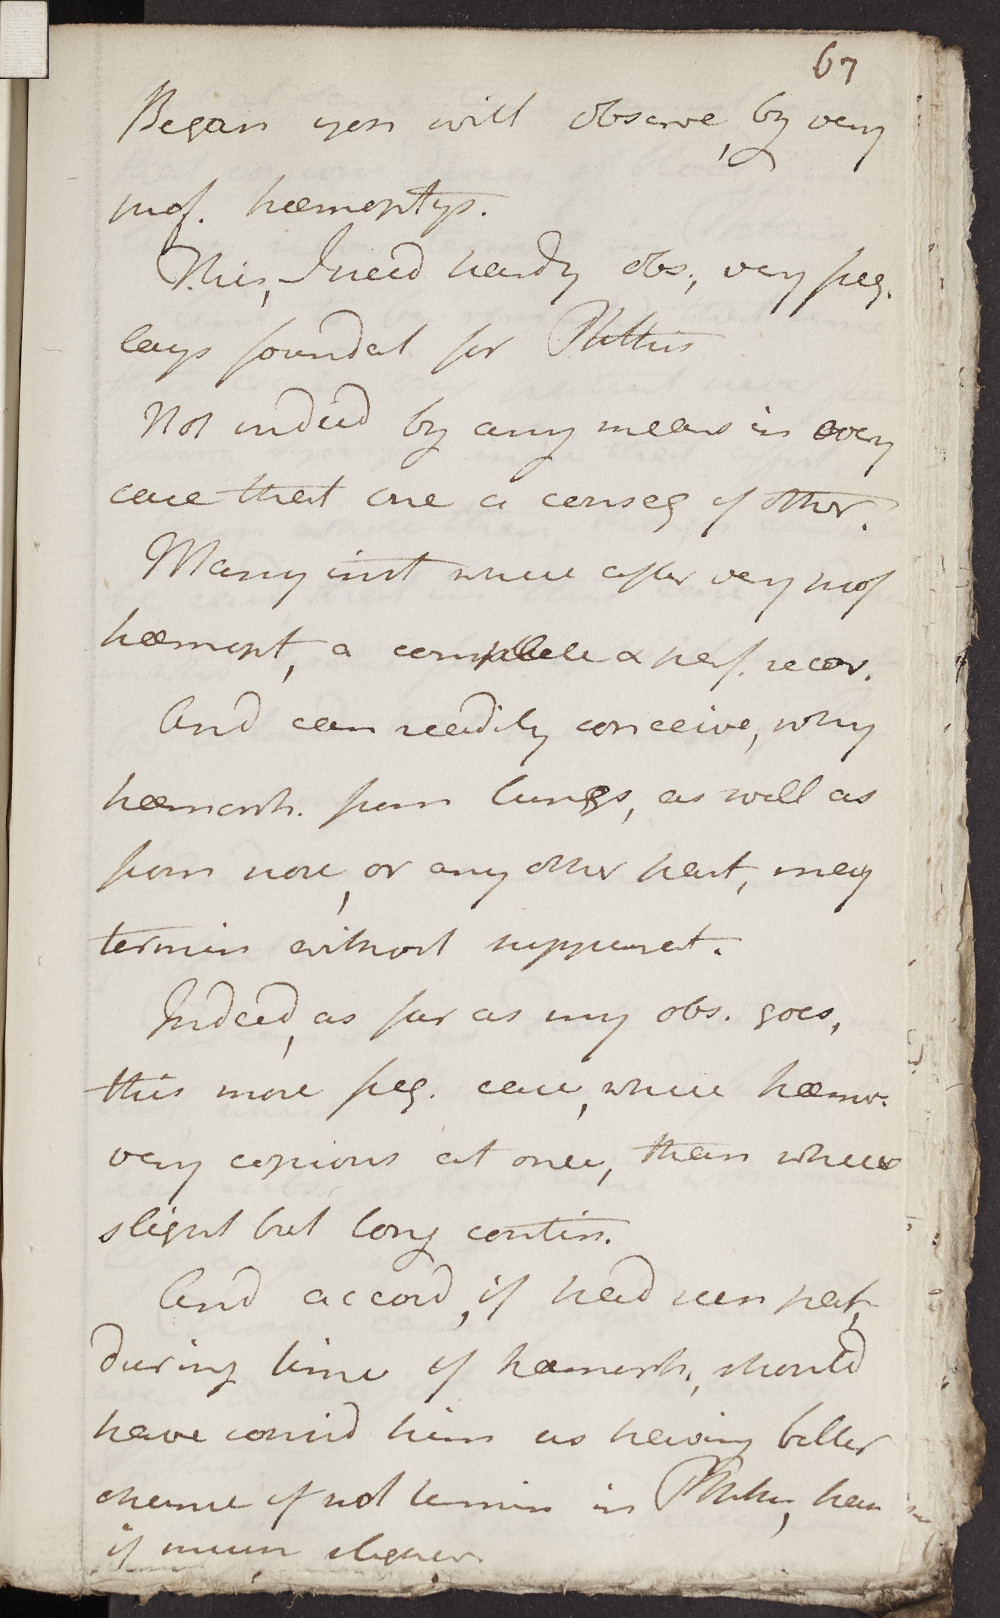 67
Began you will observe, by very
prof. hœmoptys.
This, I need hardly obs., very freq.
lays foundat for Phthisis
Not indeed by any means in every
case that one a conseq of other.
Many inst where after very prof
hœmopt, a complete & perf. recov.
And can readily conceive, why
hœmorrh. from lungs, as well as
from nose, or any other part, may
termin without suppurat.
Indeed, as far as my obs. goes,
this more freq. case, where hœmor.
very copious at once, than where
slight but long contin.
And accord, if had seen pat,
during time of hœmorrh., should
have consid him as having better
chance of not termin in Phthis, than
if much slighter.